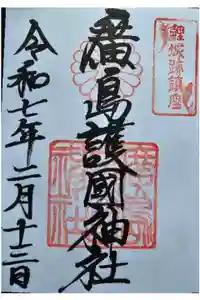 鯉城跡鎮座
廣島護國神社
令和七年二月十三日